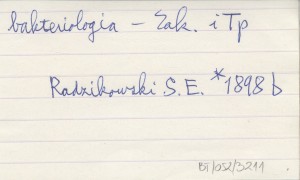 bakteriologia – Zak. i Tp
Radzikowski S.E. *1898 b
BT/052/3211